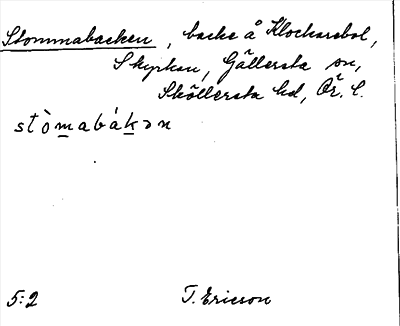 Stommabacken, backe å Klockarebol,
Skyrkan, Gällersta sn,
Sköllersta hd, Ör. l.
stòmabákən
5:2 T. Ericson